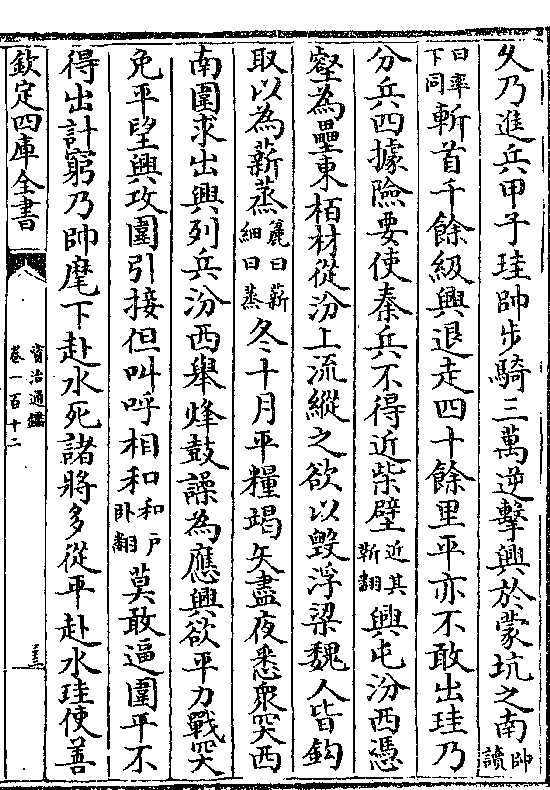 久乃進兵甲子珪帥步騎三萬逆擊興於蒙坑之南帥讀
曰率下同斬首千餘級興退走四十餘里平亦不敢出珪乃
分兵四據險要使秦兵不得近柴壁近其靳翻興屯汾西憑
壑為壘東栢材從汾上流縱之欲以毀浮梁魏人皆鈎
取以為薪蒸麤曰薪細曰蒸冬十月平糧竭矢盡夜悉衆突西
南圍求出興列兵汾西舉烽鼓譟為應興欲平力戰突
免平望興攻圍引接但叫呼相和和戸卧翻莫敢逼圍平不
得出計窮乃帥麾下赴水死諸將多從平赴水珪使善
欽定四庫全書
資治通鑑
卷一百十二